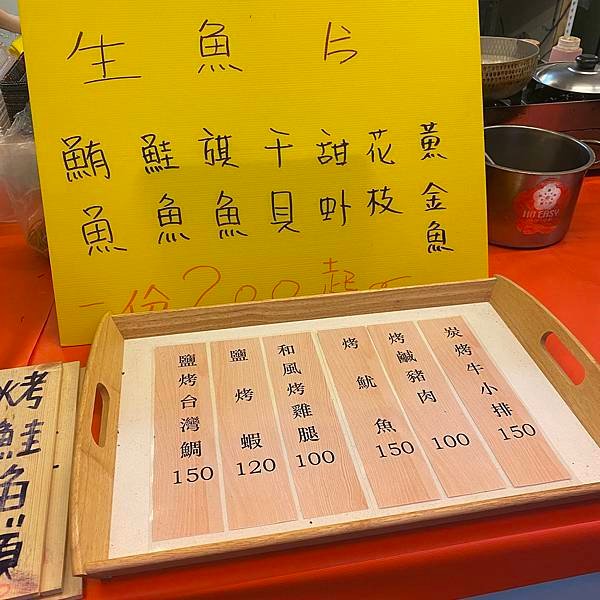 生魚片
黃金魚
花枝
甜虾
干貝
旗魚
鮭魚
鮪魚
一份200起
炭烤牛小排
150
烤鹹豬肉
100
烤魷魚
150
和風烤雞腿
100
鹽烤蝦
120
鹽烤台灣鯛
150
烤鮭魚頭